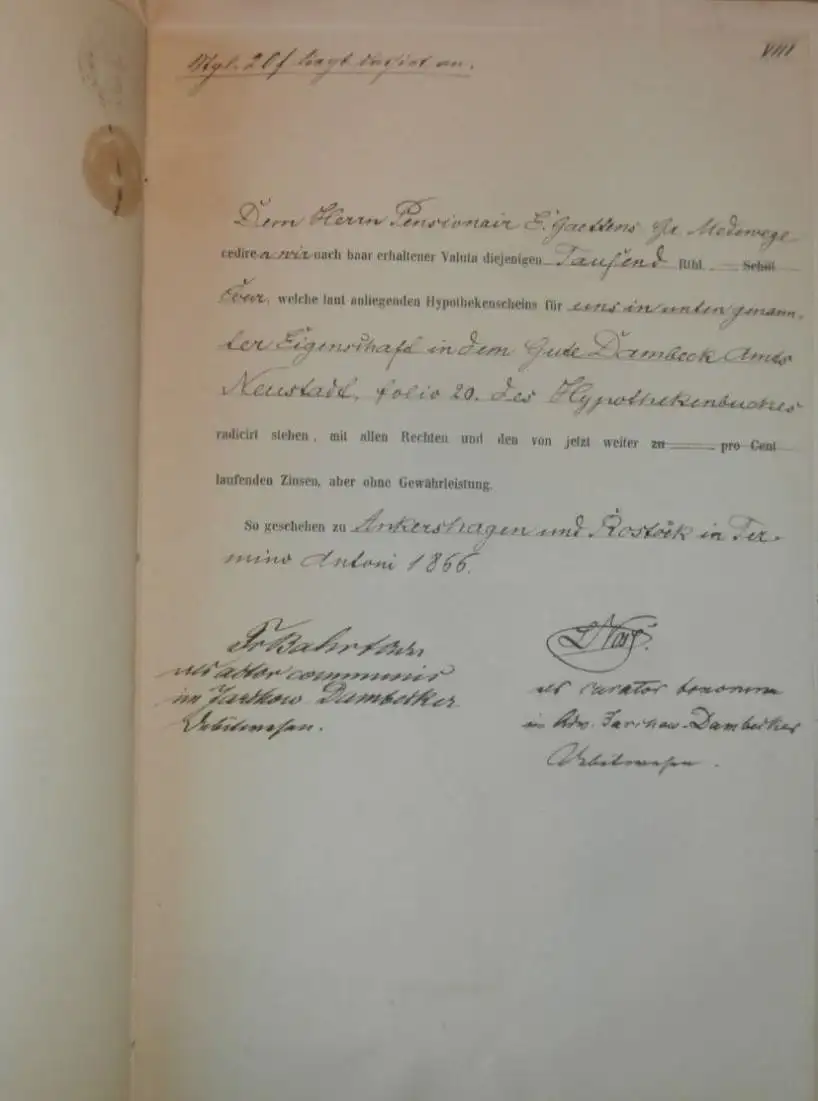 VIII
Dem Herrn Pensionair E. Gaettens Gr. Medewege
cediren wir nach baar erhaltener Valuta diejenigen Tausend Rthl. Schil
Cour, welche laut anliegenden Hypothekenscheins für uns in unten genann-
ter Eigenschaft in dem Gute Dambeck Amts
Neustadt, folio 20. des Hypothekenbuches
radicirt stehen, mit allen Rechten und den von jetzt weiter zu pro Cent
laufenden Zinsen, aber ohne Gewährleistung.
So geschehen zu Ankershagen und Rostock in Ter-
mino Antoni 1866.
als actor communis
im Jarchow Dambecker
Debitwesen.
als curator bonorum
in Adv. Jarchow-Dambecker
Debitwesen.